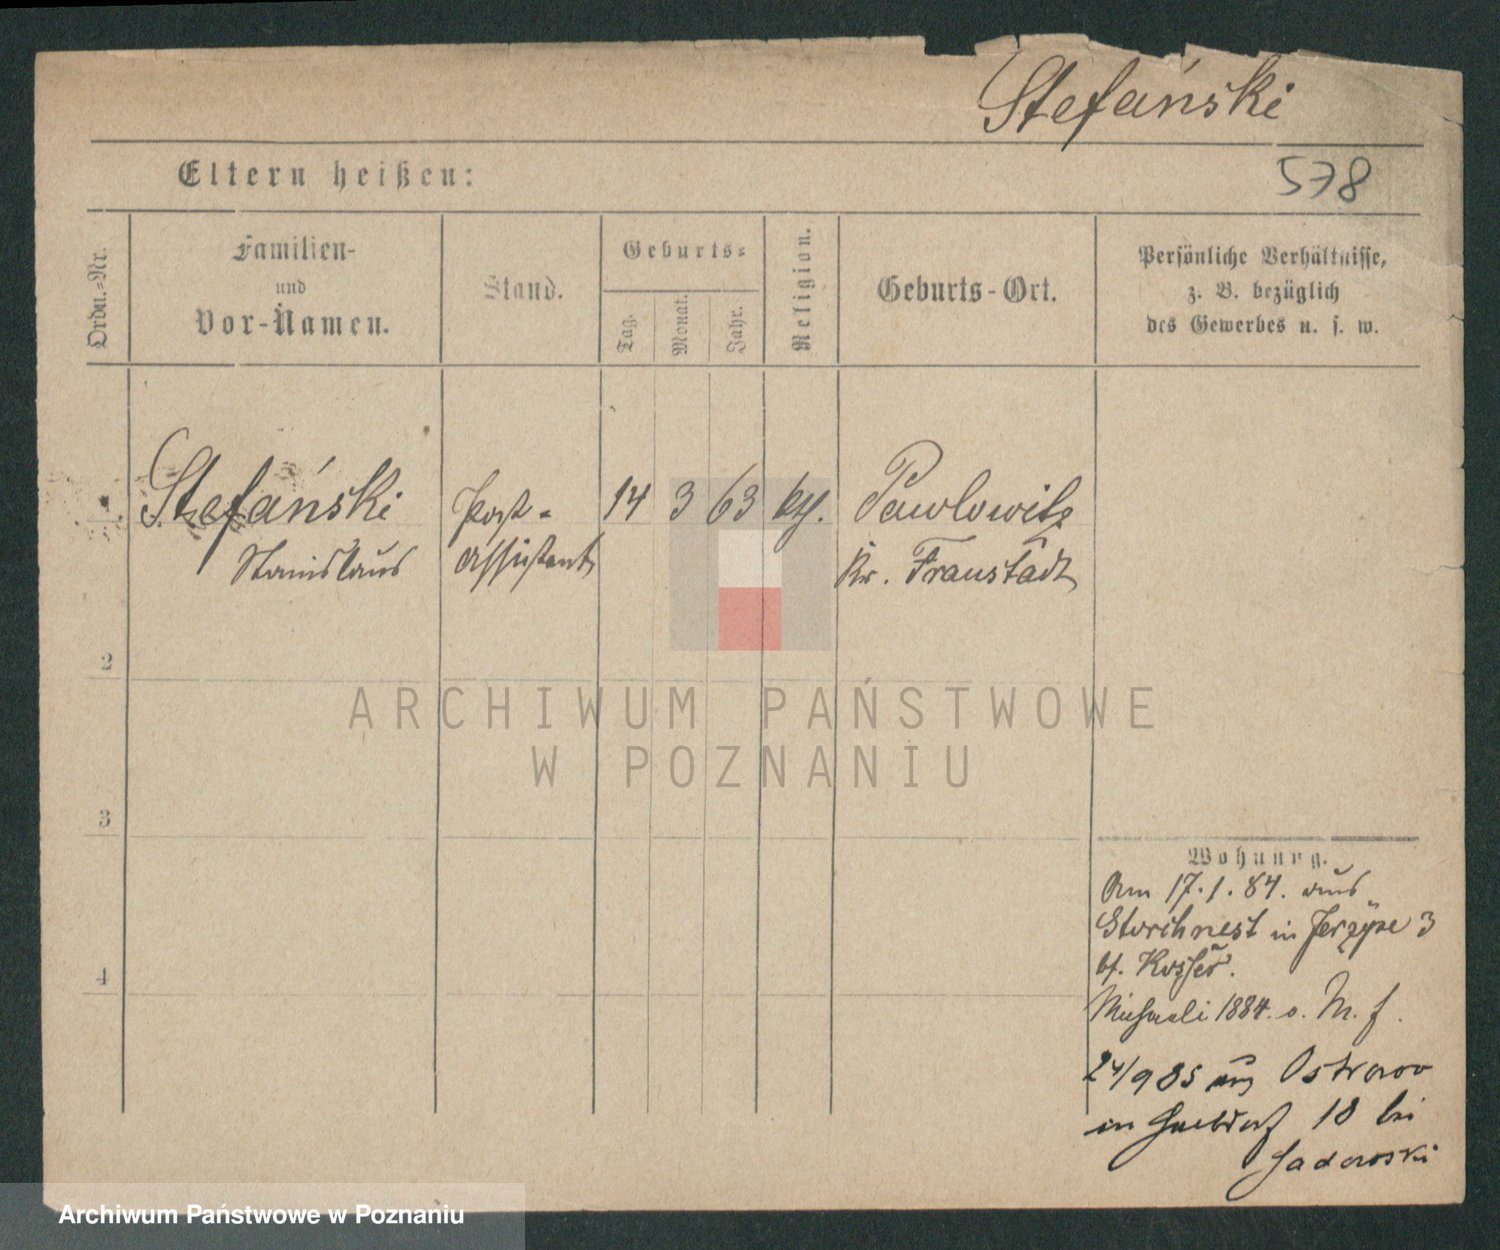 Stefański
578
Eltern heißen:
Ordn.-Nr.
Familien-
und
Vor-Namen.
Stand.
Geburts-
Tag.
Monat.
Jahr.
Religion.
Geburts-Ort.
Persönliche Verhältnisse,
z. B. bezüglich
des Gewerbes u. s. w.
Stefański
Stanislaus
Post-
assistent
14 3 63
Pawlowitz
Kr. Fraustadt
2
3
4
Wohnung.
Am 17.1.84. aus
Storchnest in 3
Michaeli 1884. o.
24/9 85 aus Ostrowo
in 18 bei
ARCHIWUM PAŃSTWOWE
W POZNANIU
Archiwum Państwowe w Poznaniu